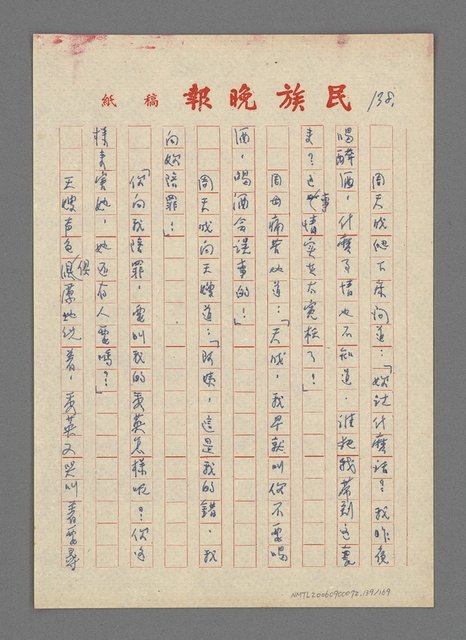 民族晚報 稿紙
138.
周天成他下床问道：「妳说什麼话？我昨夜
喝醉酒，什麼事情也不知道．谁把我带到这裏
来？这事情实在太寃枉了！」
周母痛苦地道：「天成，我早就叫你不要喝
酒，喝酒会误事的！」
周天成向天嫂道：「阿姨，這是我的錯，我
向妳陪罪！」
「你向我陪罪，要叫我的秀英怎樣呢？你这
樣来害她，她还有人要嗎？」
天嫂声色俱厲地说着，秀英又哭叫着要尋
NMTL20060900072.139/169